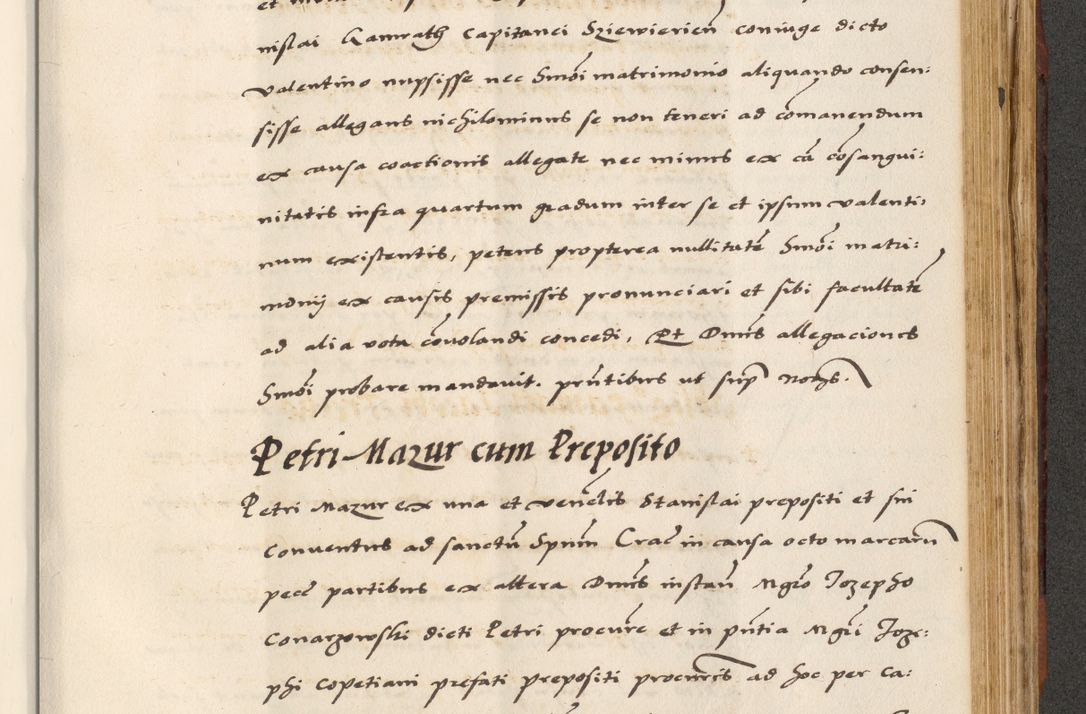 nislai Kamrath Capitanei Sziewierien̄ coniuge dicto
valentino nupsisse nec Hm̄oi matrimonio aliquando consen:
sisse allegans nichilominus se non teneri ad com̄anendum
ex causa coactionis allegate nec minus ex cā cōsangui:
nitatis infra quartum gradum inter se et ipsum valenti,
num existentis, petens propterea nullitatē Hm̄oi matri:
monij ex causis premissis pronunciari et sibi facultatē
ad alia vota cōvolandi concedi, Et Dn̄us allegaciones
Hm̄oi probare mandavit. prn̄tibus ut sup̄ Nots.
Petri Mazur cum Preposito
Petri Mazur ex una et ven̄elis Stanislai prepositi et sui
Conventus ad sanctū Spūm Crac̄ in causa octo marcarū
pecc̄ partibus ex altera Dn̄us instan̄ Mgro Jozepho
Conarzowski dicti Petri procurē et in pn̄tia Mgr̄i Joze:
phi Copetiani prefati prepositi procuris ad hoc per Ca: